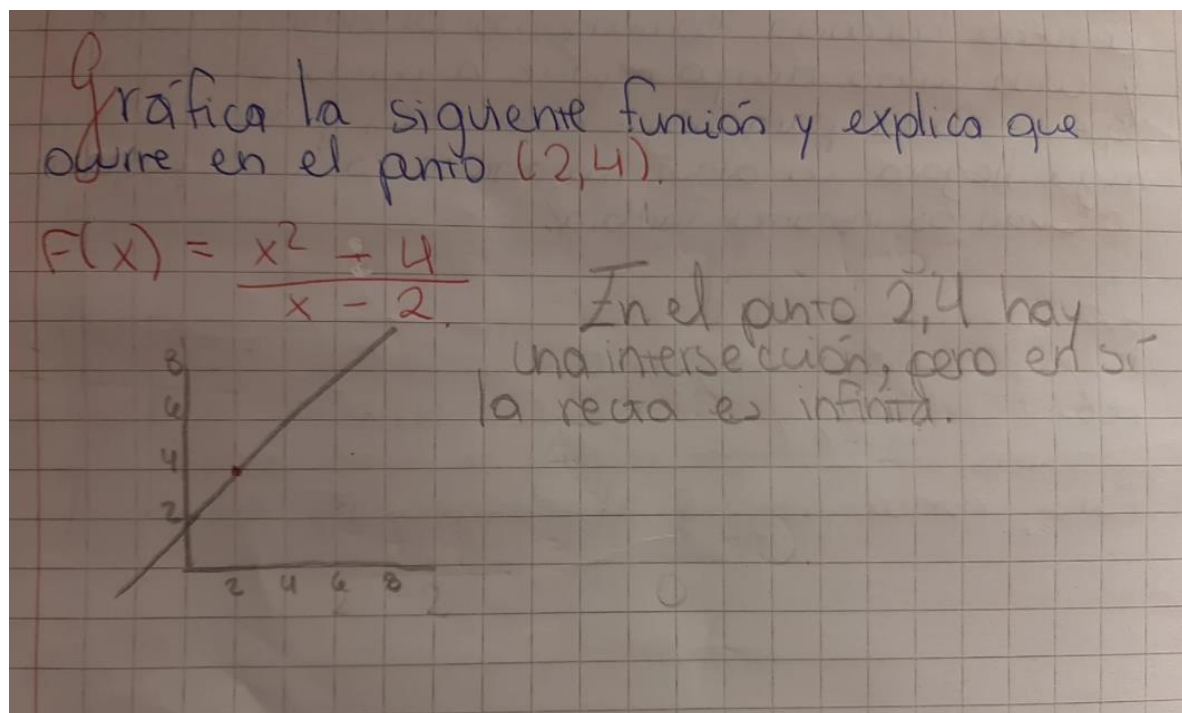 Gráfica la siguiente función y explica que
ocurre en el punto (2,4).
F(x) = x² + 4
x - 2
En el punto 2,4 hay
una intersección, pero en sí
la recta es infinita.
8
6
4
2
2 4 6 8